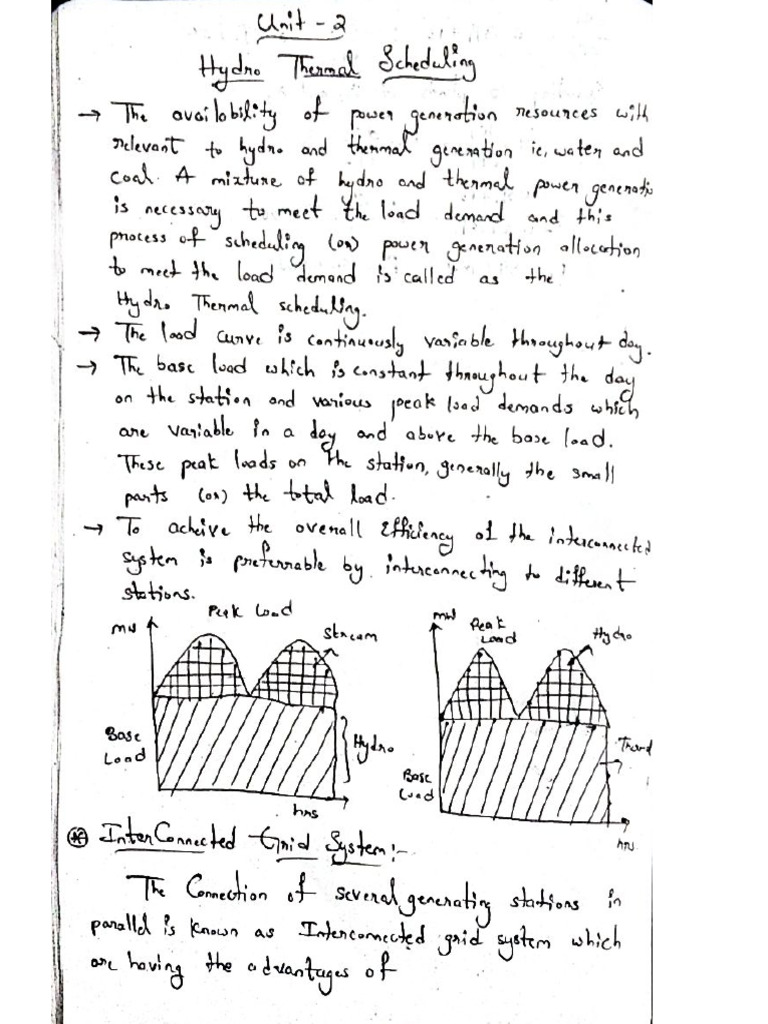 Unit - 2
Hydro Thermal Scheduling
→ The availability of power generation resources with
relevant to hydro and thermal generation ie, water and
coal. A mixture of hydro and thermal power generatio
is necessary to meet the load demand and this
process of scheduling (or) power generation allocation
to meet the load demand is called as the
Hydro Thermal scheduling.
→ The load curve is continuously variable throughout day.
→ The base load which is constant throughout the day
on the station and various peak load demands which
are variable in a day and above the base load.
These peak loads on the station, generally the small
parts (or) the total load.
→ To acheive the overall Efficiency of the interconnected
system is preferrable by interconnecting to different
stations.
Peak Load
MW
Stream
Base
Load
Hydro
hrs
MW
Peak
Load
Hydro
Base
Load
hrs
* InterConnected Grid System:-
The Connection of several generating stations in
parallel is known as Interconnected grid system which
are having the advantages of